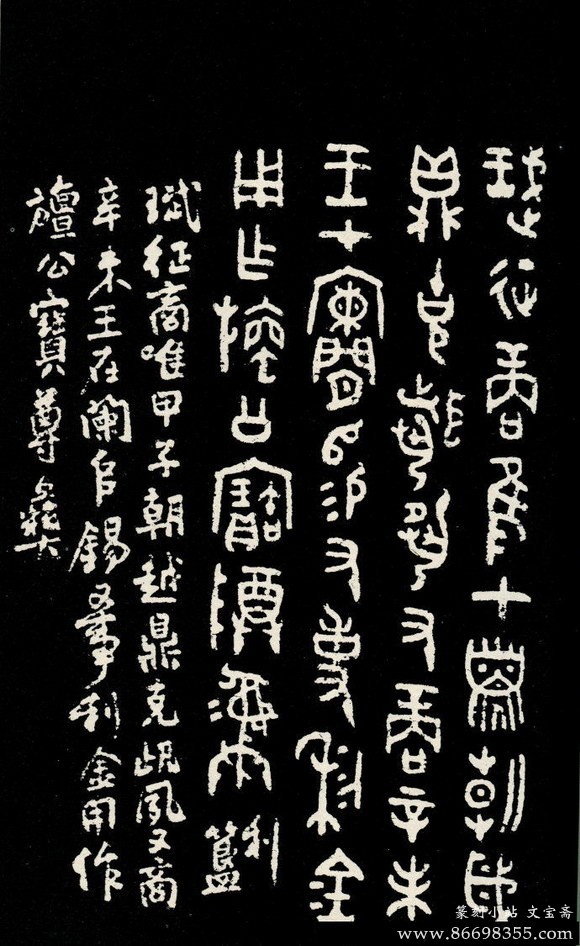 珷征商隹甲子朝歲
鼎克聞夙又商辛未
王才闌𠂤易又事利金
用乍旜公寶尊彝 利簋
珷征商唯甲子朝越鼎克昏夙又商
辛未王在闌𠂤錫又事利金用作
旜公寶尊彝
篆刻小站 文宝斋
www.86698355.com